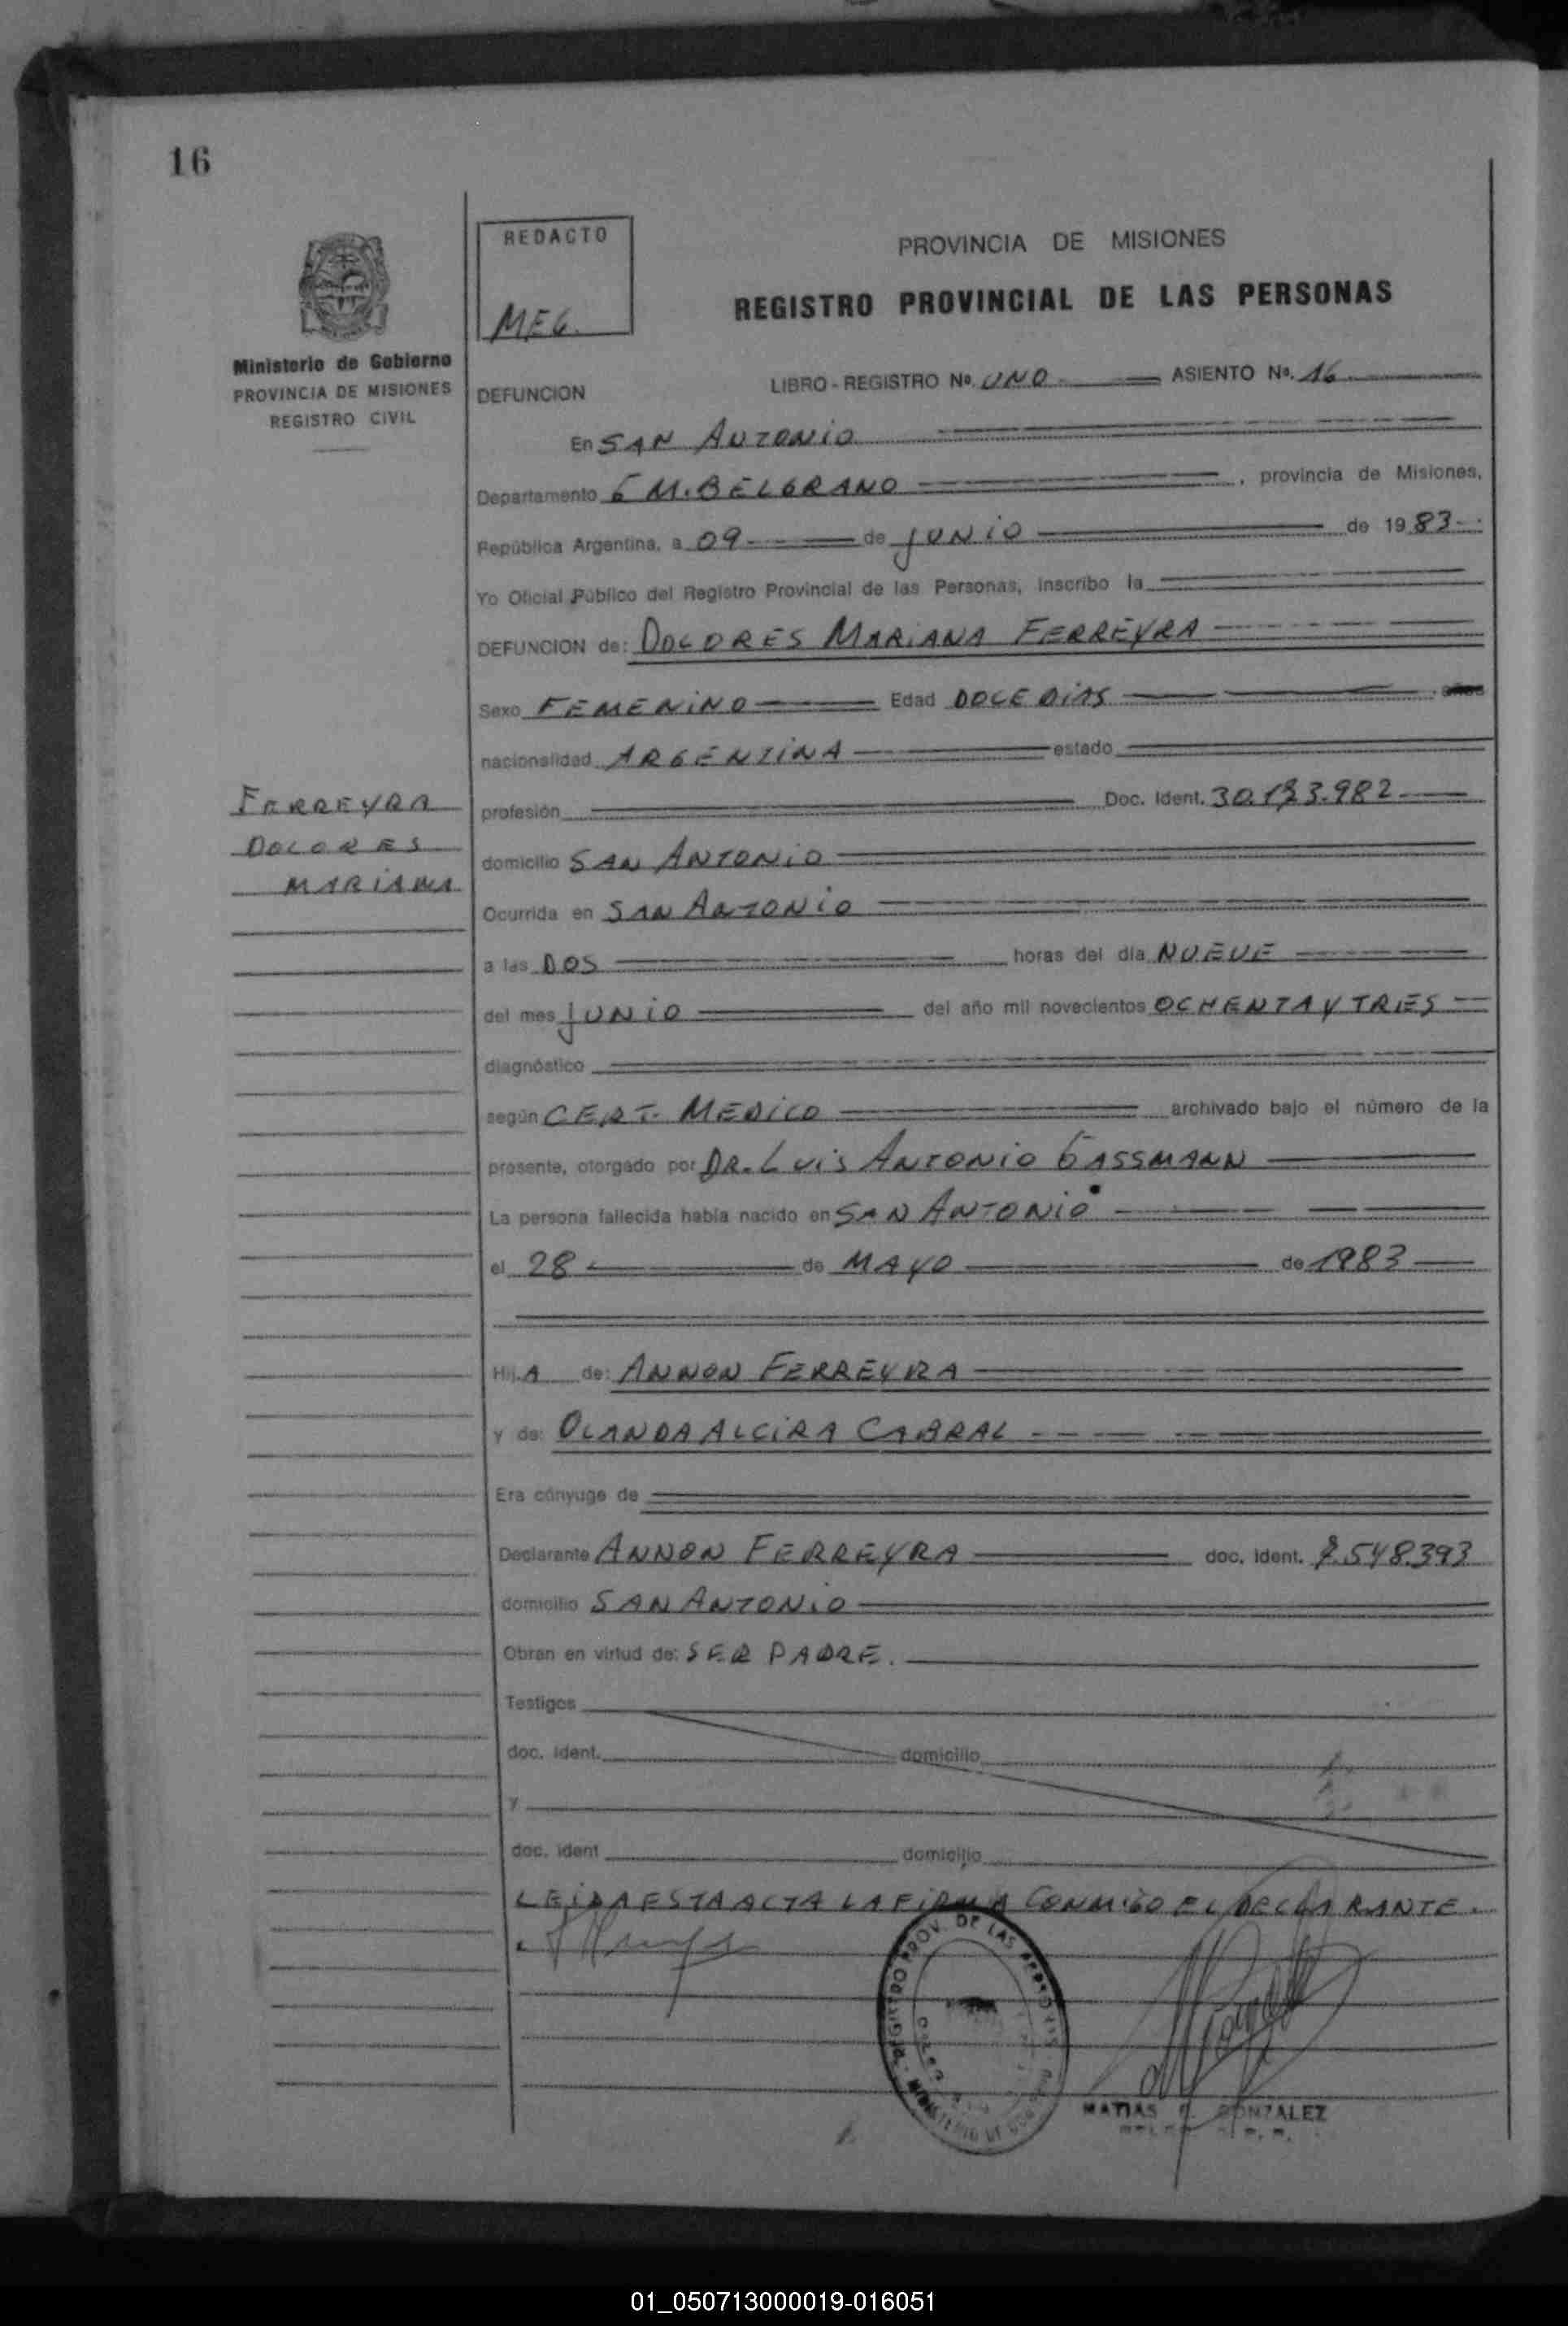 16
REDACTO
MEG.
PROVINCIA DE MISIONES
REGISTRO PROVINCIAL DE LAS PERSONAS
Ministerio de Gobierno
PROVINCIA DE MISIONES
REGISTRO CIVIL
DEFUNCION LIBRO - REGISTRO No. UNO ASIENTO No. 16
En SAN ANTONIO
Departamento G M. BELGRANO, provincia de Misiones,
República Argentina, a 09 de JUNIO de 1983
Yo Oficial Público del Registro Provincial de las Personas, inscribo la
DEFUNCION de: DOLORES MARIANA FERREYRA
Sexo FEMENINO Edad DOCE DIAS
nacionalidad ARGENTINA estado
profesión Doc. Ident.
FERREYRA
DOLORES
MARIANA
domicilio SAN ANTONIO
Ocurrida en SAN ANTONIO
a las DOS horas del día NUEVE
del mes JUNIO del año mil novecientos OCHENTA Y TRES
diagnóstico
según CERT. MEDICO archivado bajo el número de la
presente, otorgado por DR. LUIS ANTONIO GASSMANN
La persona fallecida había nacido en SAN ANTONIO
el 28 de MAYO de 1983
Hij.A de: ANNON FERREYRA
y de: OLANDA ALCIRA CABRAL
Era cónyuge de
Declarante ANNON FERREYRA doc. ident.
domicilio SAN ANTONIO
Obran en virtud de: SER PADRE.
Testigos
doc. ident. domicilio
y
doc. ident domicilio
LEIDA ESTA ACTA LA FIRMA CONMIGO EL DECLARANTE.
REGISTRO PROV. DE LAS
MATIAS GONZALEZ
01_050713000019-016051